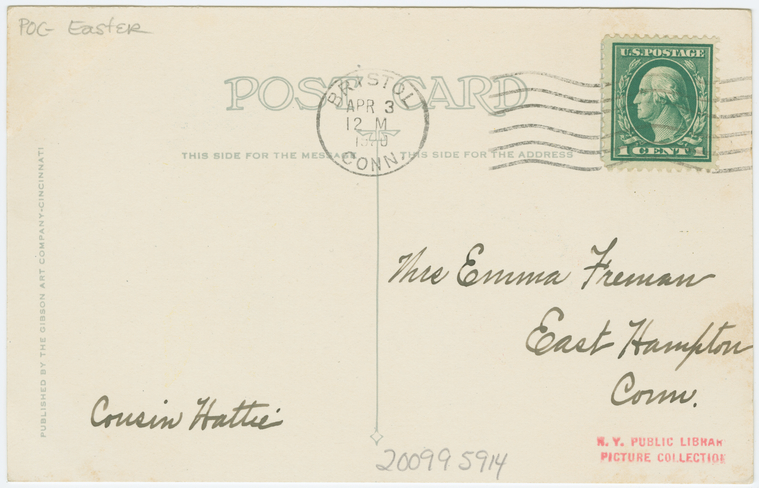 POG- Easter
U.S. POSTAGE
1 CENT 1
POST CARD
BRISTOL
APR 3
12 M
CONN.
THIS SIDE FOR THE MESSAGE
THIS SIDE FOR THE ADDRESS
PUBLISHED BY THE GIBSON ART COMPANY-CINCINNATI
Mrs Emma Freman
East Hampton
Conn.
Cousin Hattie
20099 5914
N. Y. PUBLIC LIBRAR
PICTURE COLLECTION